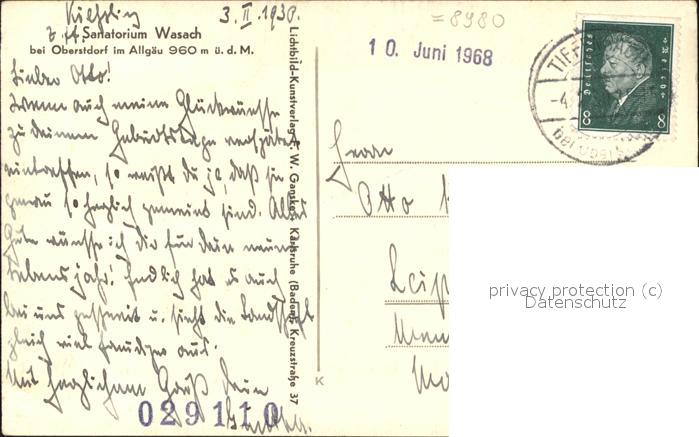 Kießling
3. II. 1930.
z. Zt. Sanatorium Wasach
bei Oberstdorf im Allgäu 960 m ü. d. M.
Lieber Otto!
Wenn auch meine Glückwünsche
zu deinem Geburtstage verspätet
eintreffen, so weißt du ja, daß sie
genau so herzlich gemeint sind. Alles
Gute wünsche ich dir für dein neues
Lebensjahr! Endlich hat es auch
bei uns geschneit u. sieht die Landschaft
gleich viel freudiger aus.
Mit herzlichem Gruß dein
029110
Lichtbild-Kunstverlag F. W. Ganske, Karlsruhe (Baden), Kreuzstraße 37
K
=8980
10. Juni 1968
TIEF
-4.
bei Oberst
Deutsches Reich
8 8
Herrn
Otto
Leip
privacy protection (c)
Datenschutz